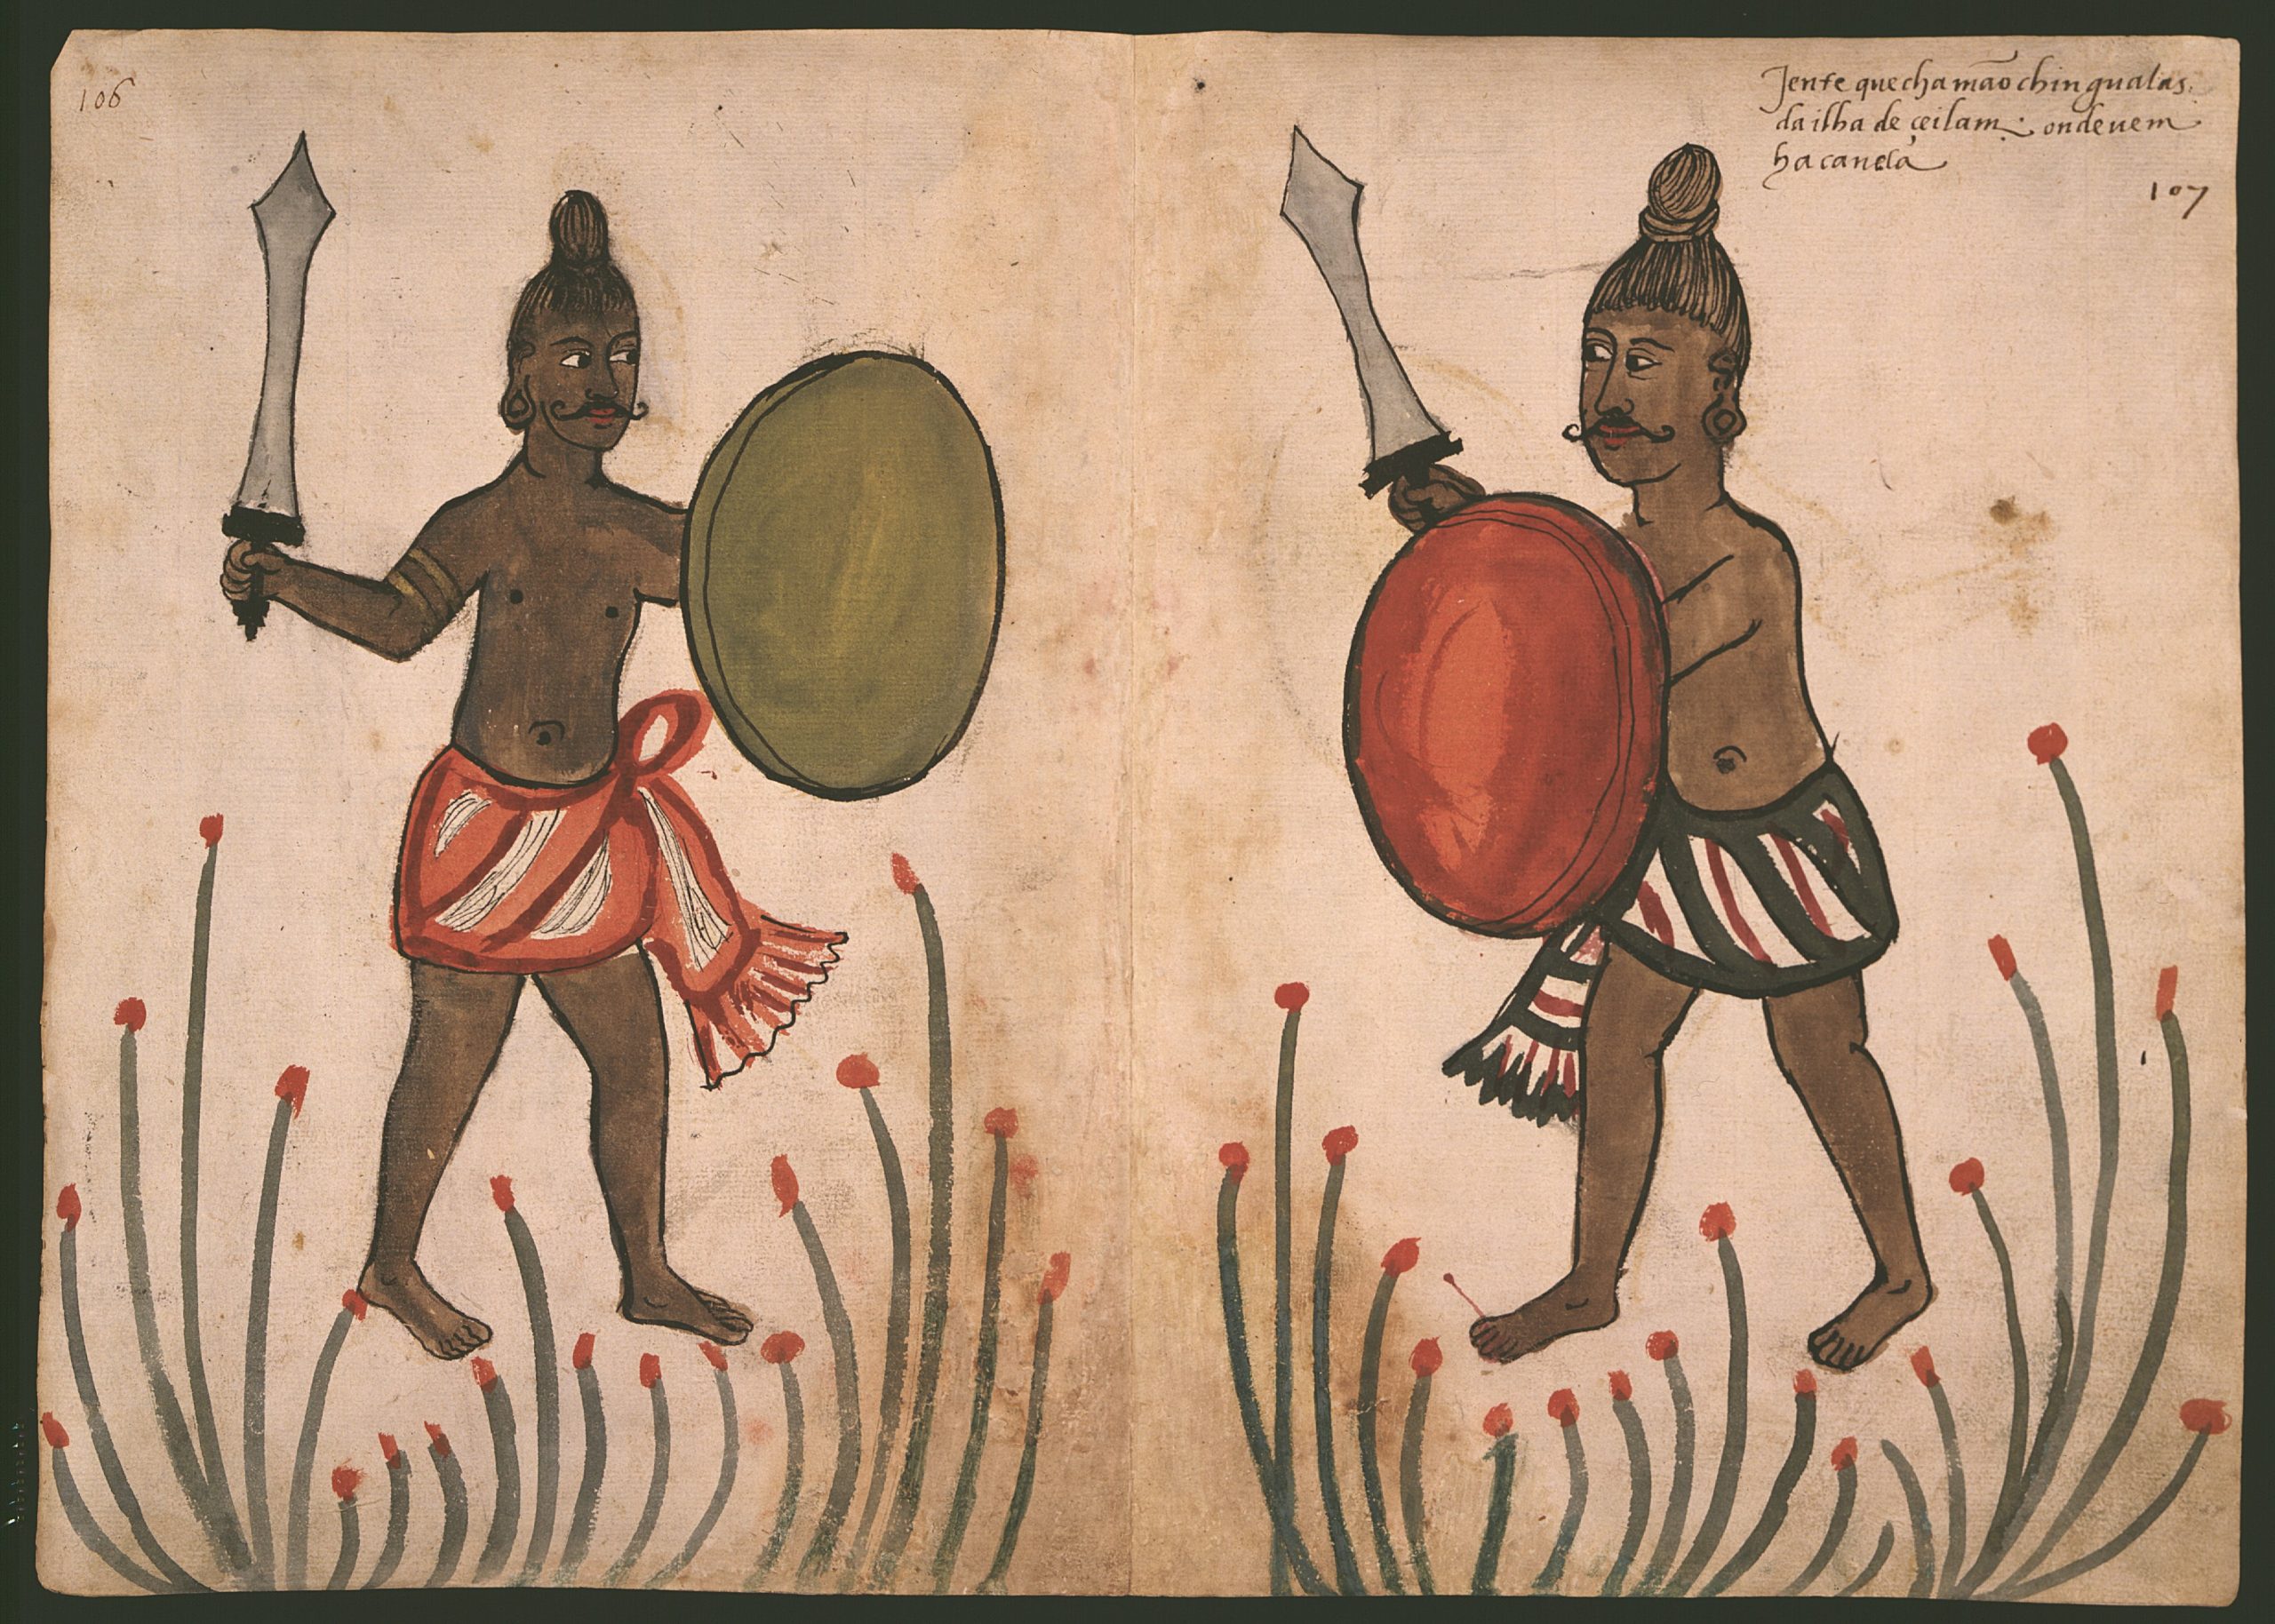 106
Jente que chamão chingualas.
da ilha de çeilam: onde vem
ha canela
107